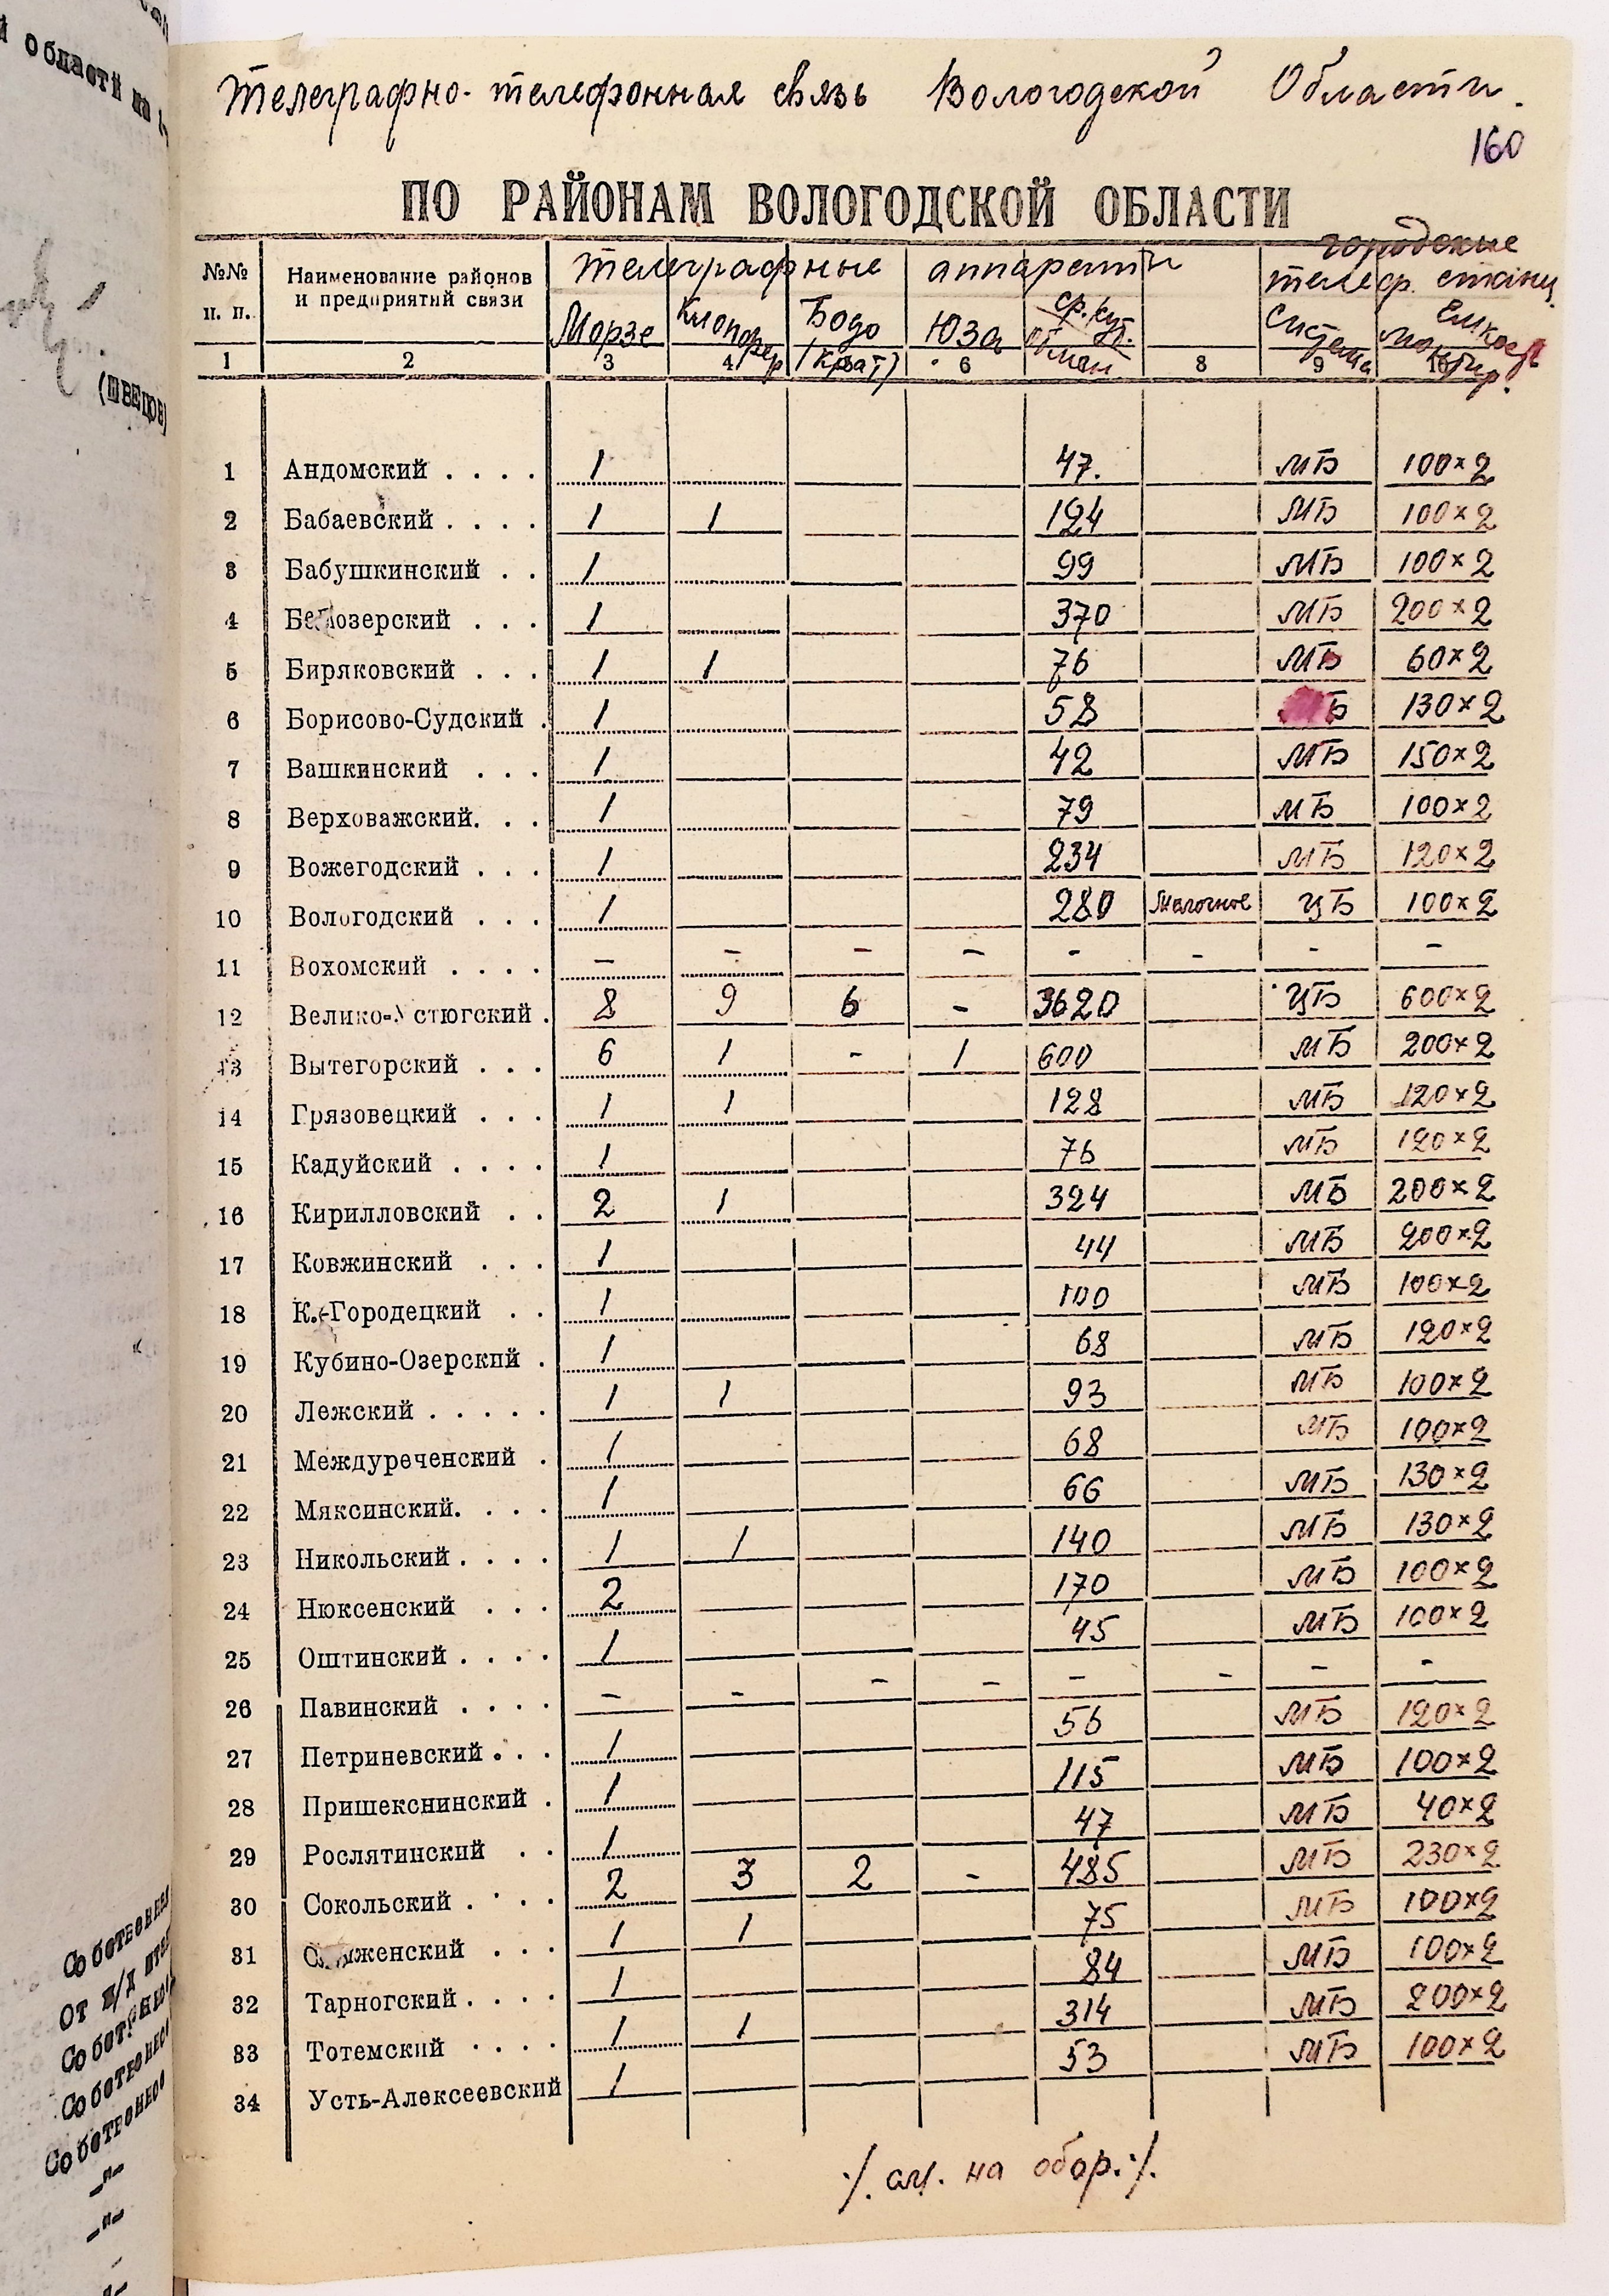 области на 1-
(ШВЕЦОВ)
Телеграфно-телефонная связь Вологодской Области.
160
ПО РАЙОНАМ ВОЛОГОДСКОЙ ОБЛАСТИ
№№ п. п. Наименование районов и предприятий связи телеграфные аппараты городские телеф. станц.
Морзе Клопфер Бодо (крат) Юза ср. сут. обмен Система Емкость монтир.
1 2 3 4 6 8 9 10
1 Андомский . . . . 1 47. МБ 100×2
2 Бабаевский . . . . 1 1 124 МБ 100×2
3 Бабушкинский . . 1 99 МБ 100×2
4 Белозерский . . . 1 370 МБ 200×2
5 Биряковский . . . 1 1 76 МБ 60×2
6 Борисово-Судский . 1 58 МБ 130×2
7 Вашкинский . . . 1 42 МБ 150×2
8 Верховажский. . . 1 79 МБ 100×2
9 Вожегодский . . . 1 234 МБ 120×2
10 Вологодский . . . 1 280 Молочное ЦБ 100×2
11 Вохомский . . . . - - - - - - - -
12 Велико-Устюгский . 8 9 6 - 3620 ЦБ 600×2
13 Вытегорский . . . 6 1 - 1 600 МБ 200×2
14 Грязовецкий . . . 1 1 128 МБ 120×2
15 Кадуйский . . . . 1 76 МБ 120×2
16 Кирилловский . . 2 1 324 МБ 200×2
17 Ковжинский . . . 1 44 МБ 200×2
18 К.-Городецкий . . 1 100 МБ 100×2
19 Кубино-Озерский . 1 68 МБ 120×2
20 Лежский . . . . . 1 1 93 МБ 100×2
21 Междуреченский . 1 68 МБ 100×2
22 Мяксинский. . . . 1 66 МБ 130×2
23 Никольский . . . . 1 1 140 МБ 130×2
24 Нюксенский . . . 2 170 МБ 100×2
25 Оштинский . . . . 1 45 МБ 100×2
26 Павинский . . . . - - - - - - - -
27 Петриневский . . . 1 56 МБ 120×2
28 Пришекснинский . 1 115 МБ 100×2
29 Рослятинский . . 1 47 МБ 40×2
30 Сокольский . . . . 2 3 2 - 485 МБ 230×2
31 С уженский . . . 1 1 75 МБ 100×2
32 Тарногский . . . . 1 84 МБ 100×2
33 Тотемский . . . . 1 1 314 МБ 200×2
34 Усть-Алексеевский 1 53 МБ 100×2
·/. см. на обор. ·/.